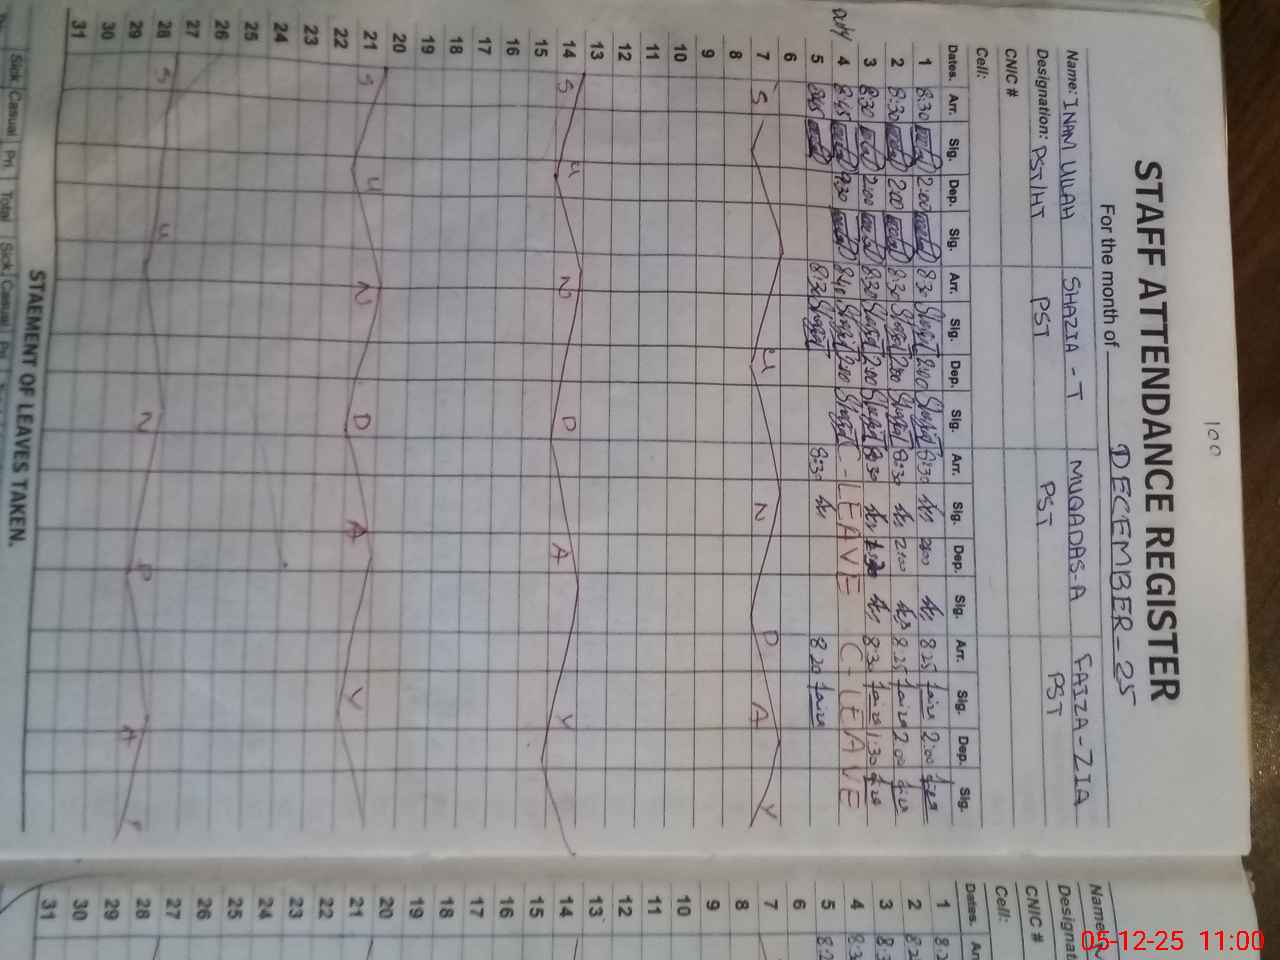 100
STAFF ATTENDANCE REGISTER
For the month of DECEMBER-25
Name: INAM ULLAH SHAZIA - T MUQADAS-A FAIZA-ZIA
Designation: PST/HT PST PST PST
CNIC #
Cell:
Dates. Arr. Sig. Dep. Sig. Arr. Sig. Dep. Sig. Arr. Sig. Dep. Sig. Arr. Sig. Dep. Sig.
1 8:30 2:00 8:30 2:00 8:30 2:00 8:25 faiza 2:00 faiza
2 8:30 2:00 8:30 2:00 8:30 2:00 8:25 faiza 2:00 faiza
3 8:30 2:00 8:30 2:00 8:30 1:30 8:30 faiza 1:30 faiza
4 8:45 9:30 8:40 2:00 C-LEAVE C-LEAVE
5 8:45 8:30 8:30 8:20 faiza
6
7 S U N D A Y
8
9
10
11
12
13
14 S U N D A Y
15
16
17
18
19
20
21 S U N D A Y
22
23
24
25
26
27
28 S U N D A Y
29
30
31
STAEMENT OF LEAVES TAKEN.
Sick Casual Pri. Total Sick Casual Pri.
Name
Designat
CNIC #
Cell:
Dates. Arr
1 8:2
2 8:2
3 8:3
4 8:3
5 8:2
6
7
8
9
10
11
12
13
14
15
16
17
18
19
20
21
22
23
24
25
26
27
28
29
30
31
05-12-25 11:00